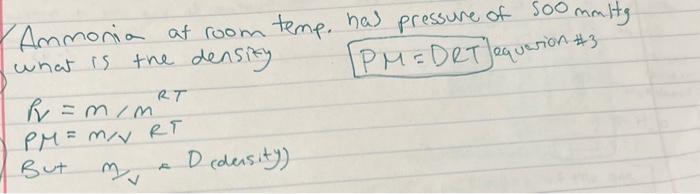 Ammonia at room temp. has pressure of 500 mmHg
what is the density PM = DRT equation #3
Pv = m/m RT
PM = m/v RT
But m/v = D (density)